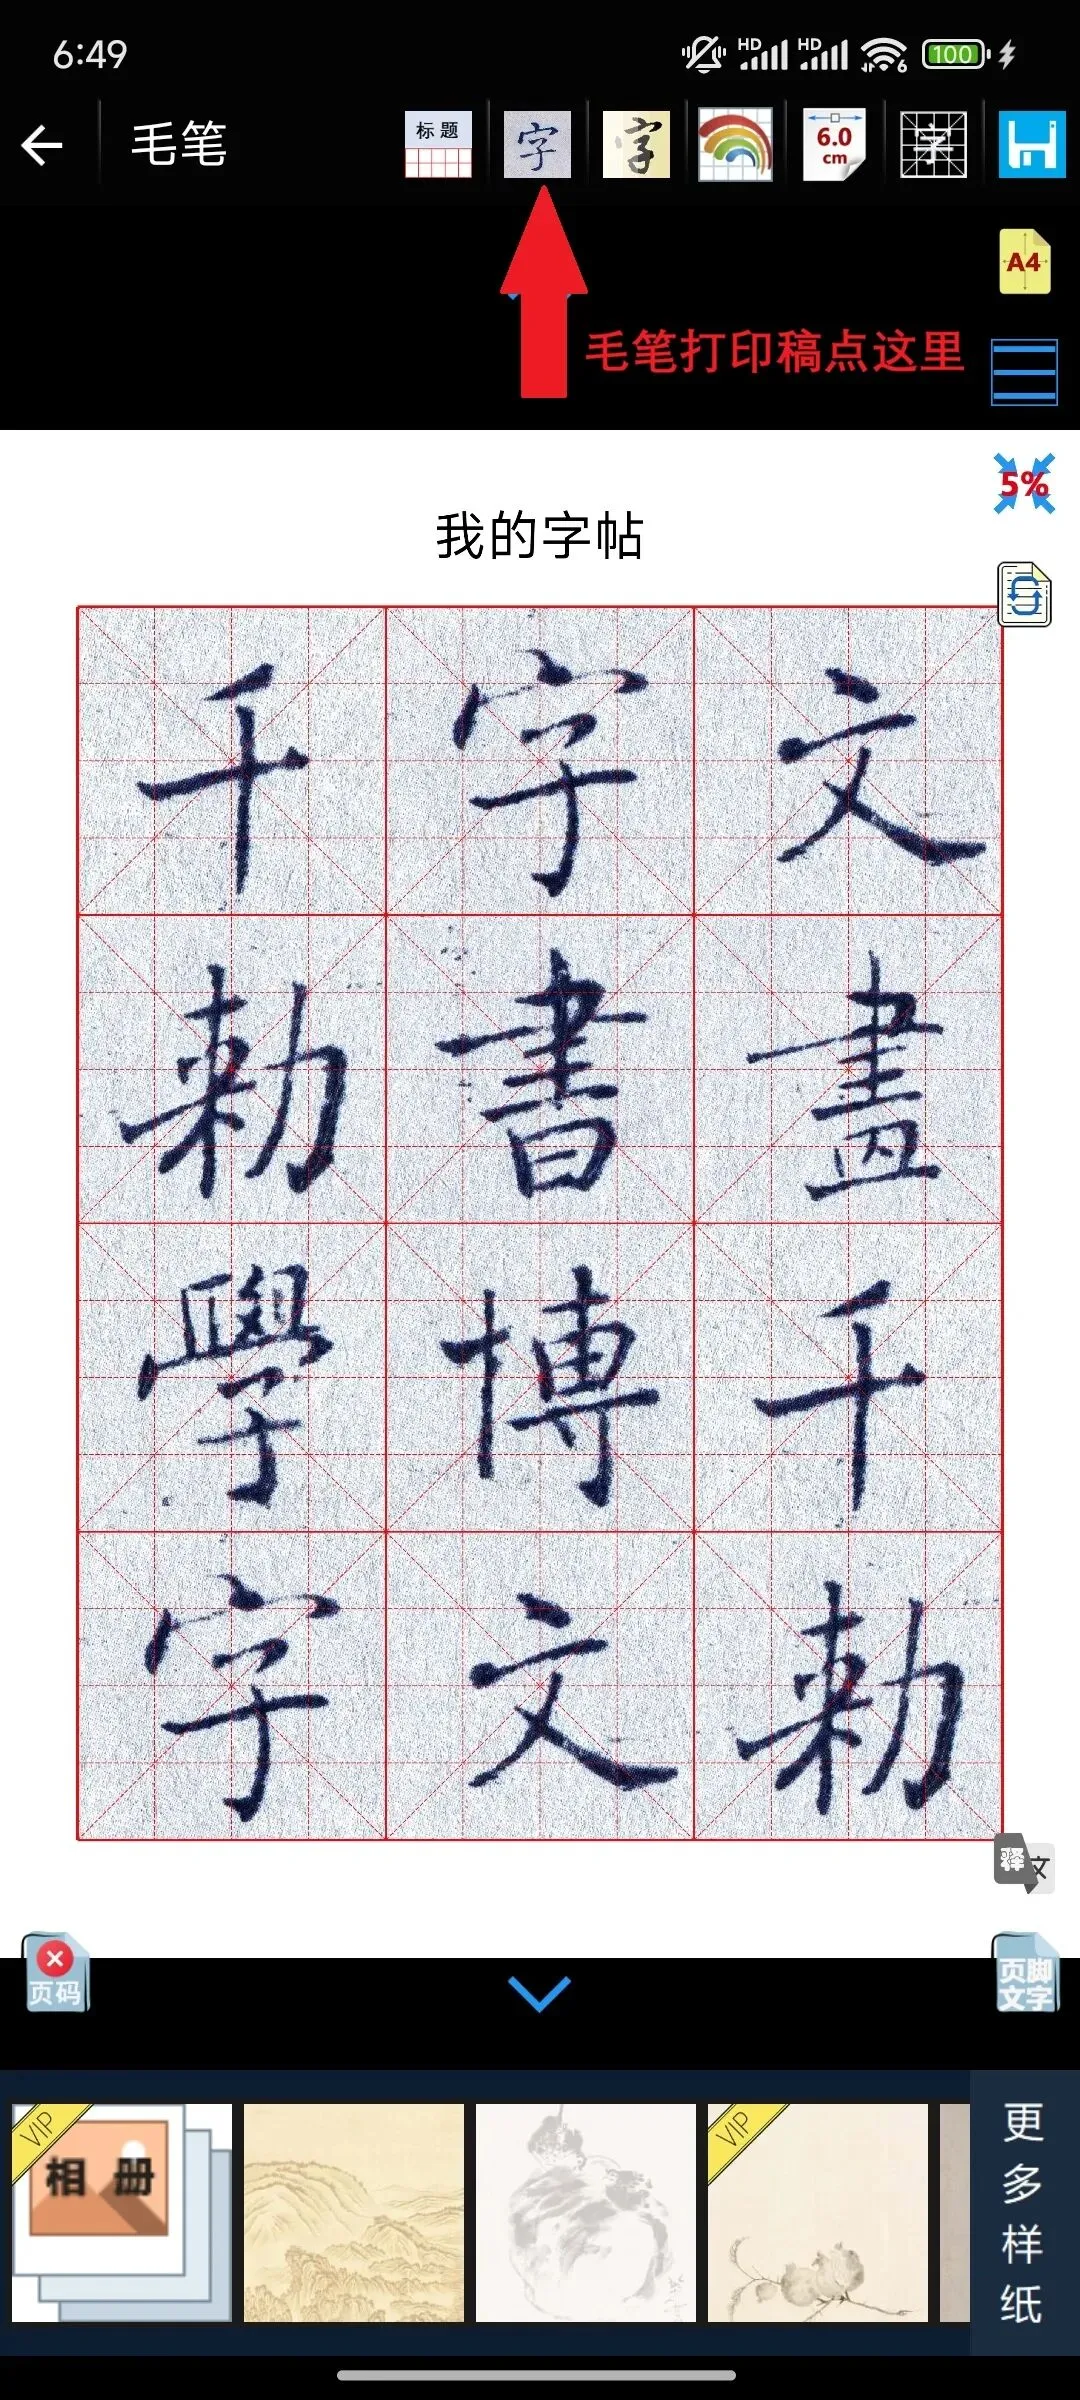 6:49
HD HD 6 100
毛笔
标题 字 字 6.0 cm 字
A4
毛笔打印稿点这里
5%
我的字帖
千字文
勅書畫
學博千
字文勅
释文
页码
页脚文字
VIP 相册
VIP
更多样纸